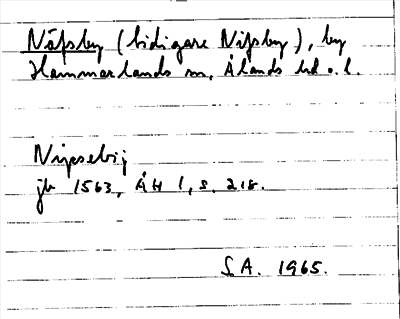 Näfsby (tidigare Nifsby), by
Hammarlands sn, Ålands hd o. l.
Nipsebij
jb 1563, ÅH 1, s. 218.
S.A. 1965.